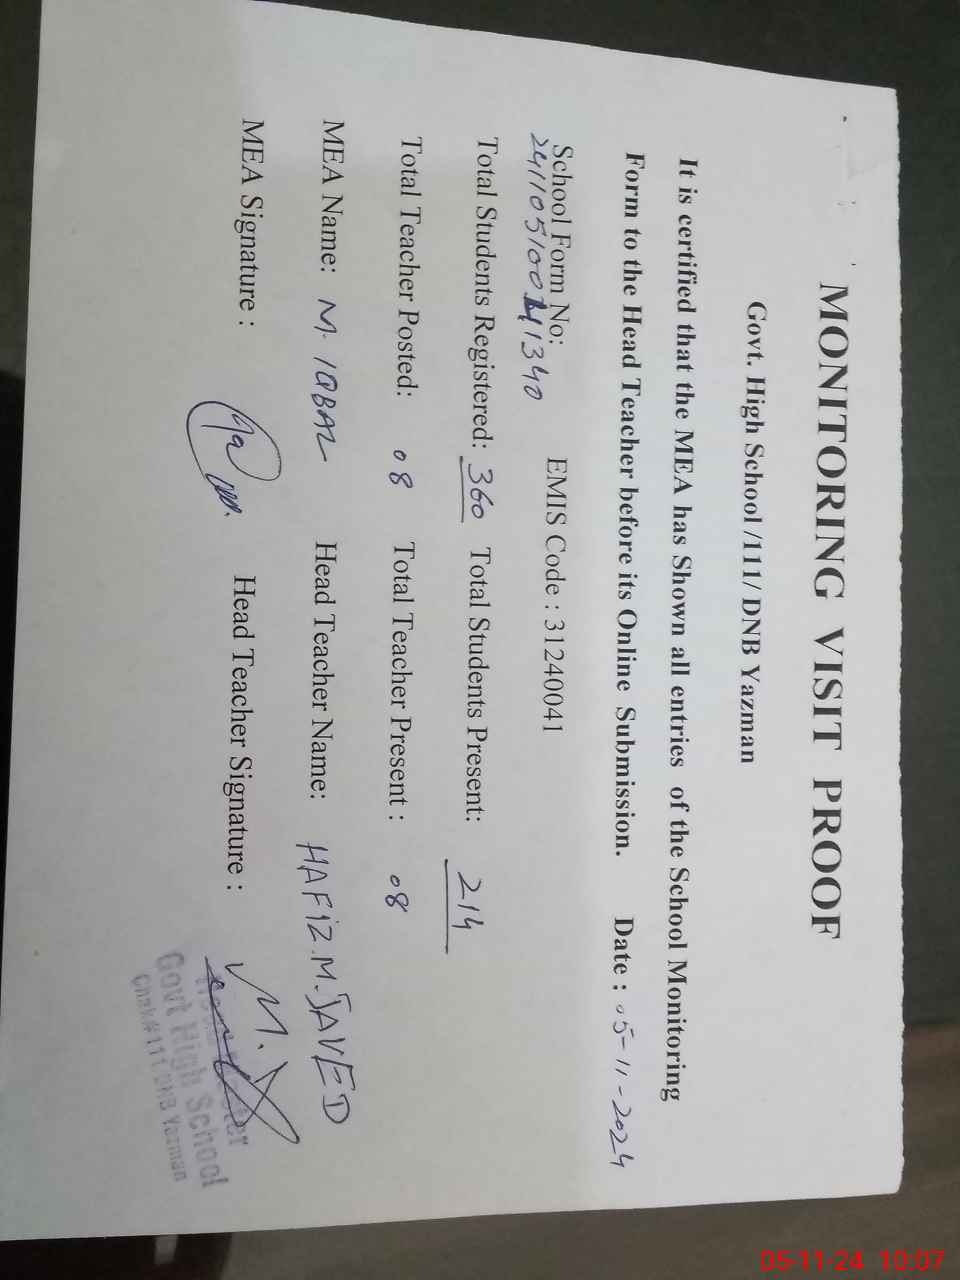 MONITORING VISIT PROOF
Govt. High School /111/ DNB Yazman
It is certified that the MEA has Shown all entries of the School Monitoring
Form to the Head Teacher before its Online Submission. Date : 05-11-2024
School Form No: EMIS Code : 31240041
Total Students Registered: 360 Total Students Present: 214
Total Teacher Posted: 08 Total Teacher Present : 08
MEA Name: M. IQBAL Head Teacher Name: HAFIZ. M. JAVED
MEA Signature : Head Teacher Signature :
Govt High School
Chak#111 DNB Yazman
05-11-24 10:07